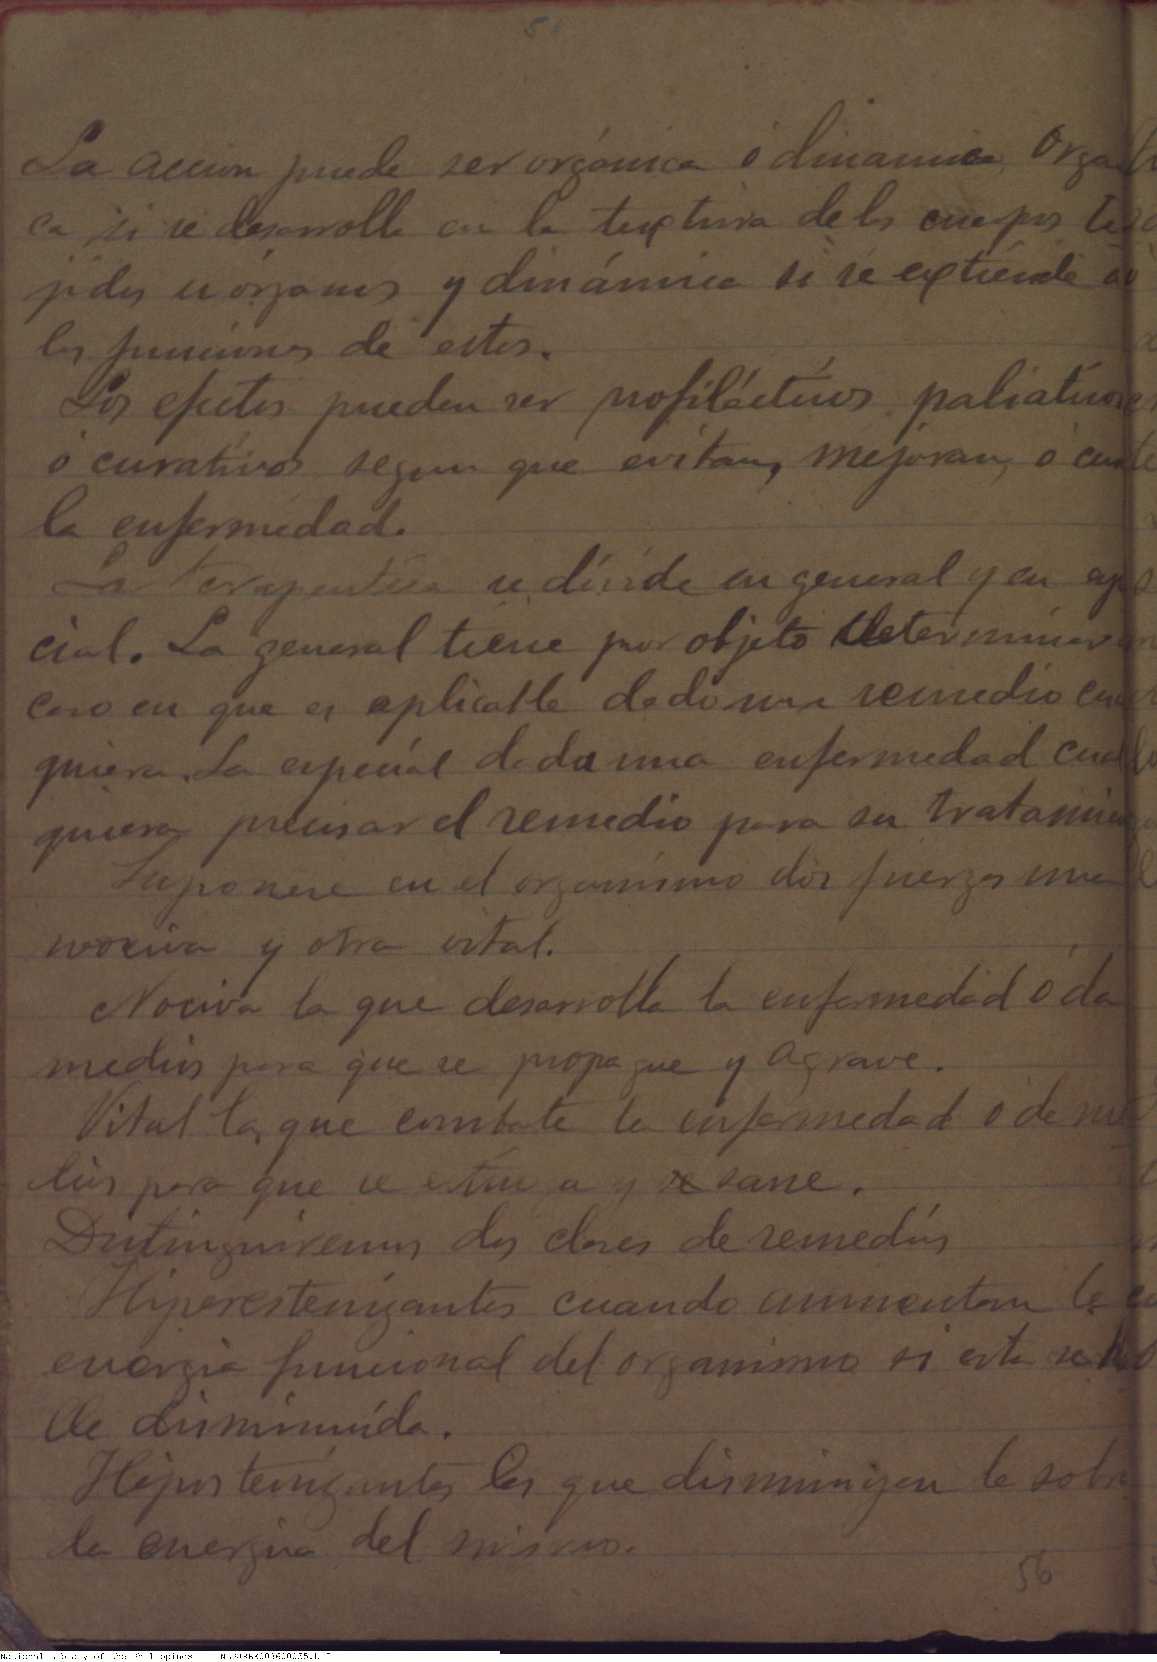 La accion puede ser orgánica ó dinamica Orga
ca si se desarrolla en la textura de los cuerpos te
jidos u órganos y dinámica si se extiende a
las funciones de estos.
Los efectos pueden ser profilácticos, paliativos
ó curativos segun que evitan, mejoran, ó cu
la enfermedad.
La terapeutica se divide en general y en esp
cial. La general tiene por objeto determinar
caso en que es aplicable dado un remedio cu
quiera. La especial dada una enfermedad cual
quiera precisar el remedio para su tratamien
Suponese en el organismo dos fuerzas una
nociva y otra vital.
Nociva la que desarrolla la enfermedad ó da
medios para que se propague y agrave.
Vital la que combate la enfermedad ó da me
dios para que se y sane.
Distinguiremos dos clases de remedios
Hiperestenizantes cuando aumentan la
energia funcional del organismo si esta se ha
lle disminuida.
Hipostenizantes los que disminuyen la sobra
da energia del mismo.
56
National Library of the Philippines